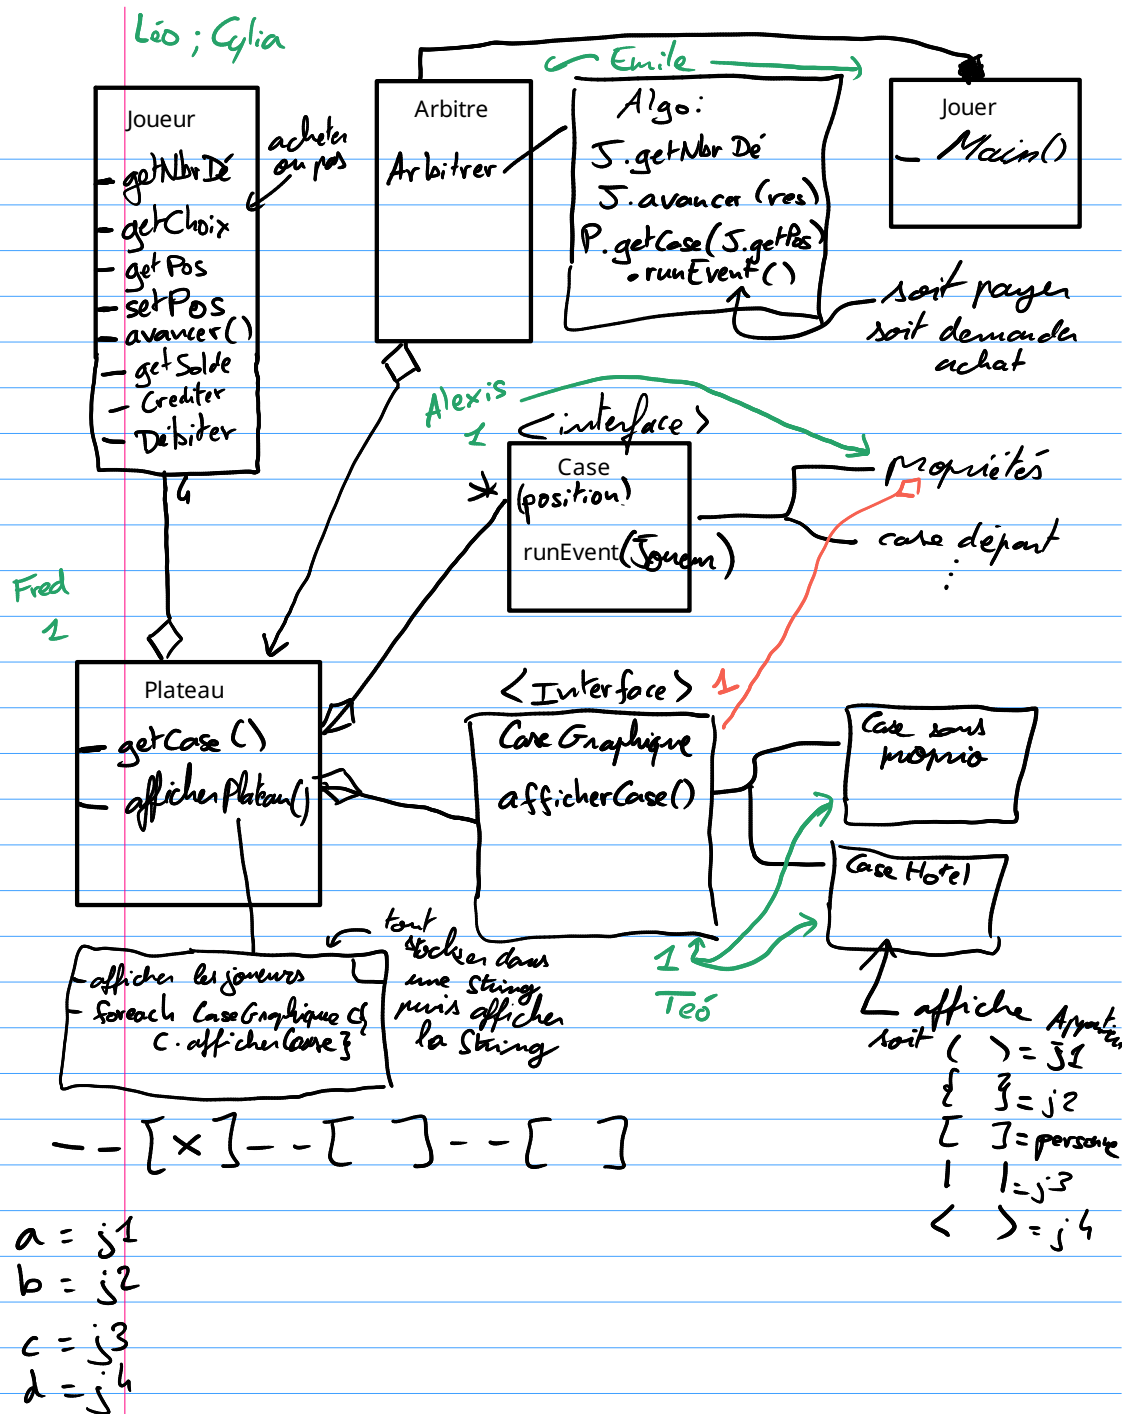 Léo ; Cylia
Joueur
getNbrDé
getChoix
getPos
setPos
avancer()
getSolde
Crediter
Débiter
4
acheter
ou pas
Arbitre
Arbitrer
Emile
Algo:
J.getNbrDé
J.avancer(res)
P.getCase(J.getPos)
.runEvent()
Jouer
Main()
soit payer
soit demander
achat
Alexis
1
<interface>
Case
(position)
runEvent(Joueur)
*
propriétés
case départ
...
Fred
1
Plateau
getCase()
afficherPlateau()
<Interface>
1
CaseGraphique
afficherCase()
Case sans
proprio
Case Hotel
1
Teó
- afficher les joueurs
- foreach CaseGraphique c{
C.afficherCase}
tout
stocker dans
une string
puis afficher
la string
affiche
soit ( ) = j1
{ } = j2
[ ] = personne
| | = j3
< > = j4
-- [x] -- [ ] -- [ ]
a = j1
b = j2
c = j3
d = j4